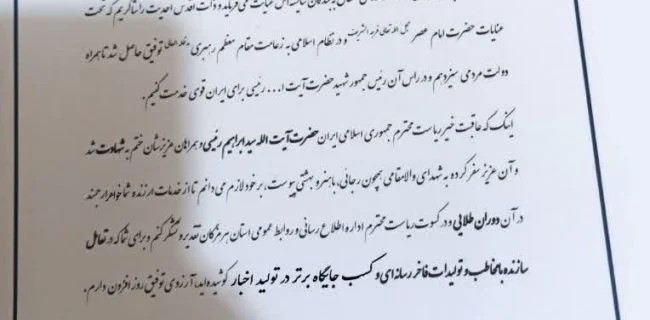 عنایات حضرت امام عصر عجل الله تعالی فرجه الشریف و در نظام اسلامی به زعامت مقام معظم رهبری مدظله العالی توفیق حاصل شد تا همراه
دولت مردمی سیزدهم و در راس آن رئیس جمهور شهید حضرت آیت ا... رئیسی برای ایران قوی خدمت کنیم.
اینک که عاقبت خیر ریاست محترم جمهوری اسلامی ایران حضرت آیت الله سید ابراهیم رئیسی و همراهان عزیزشان ختم به شهادت شد
و آن عزیز سفر کرده به شهدای والامقامی همچون رجائی، باهنر و بهشتی پیوست، بر خود لازم می دانم تا از خدمات ارزنده شما خواهر ارجمند
در آن دوران طلایی و در کسوت ریاست محترم اداره اطلاع رسانی و روابط عمومی استان هرمزگان تقدیر و تشکر کنم و برای شما که در تعامل
سازنده با مخاطب و تولیدات فاخر رسانه ای و کسب جایگاه برتر در تولید اخبار کوشیده اید، آرزوی توفیق روز افزون دارم.